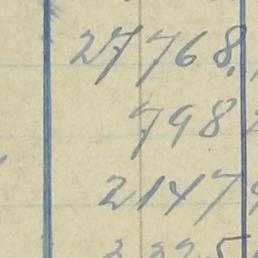 27768.
798
2147